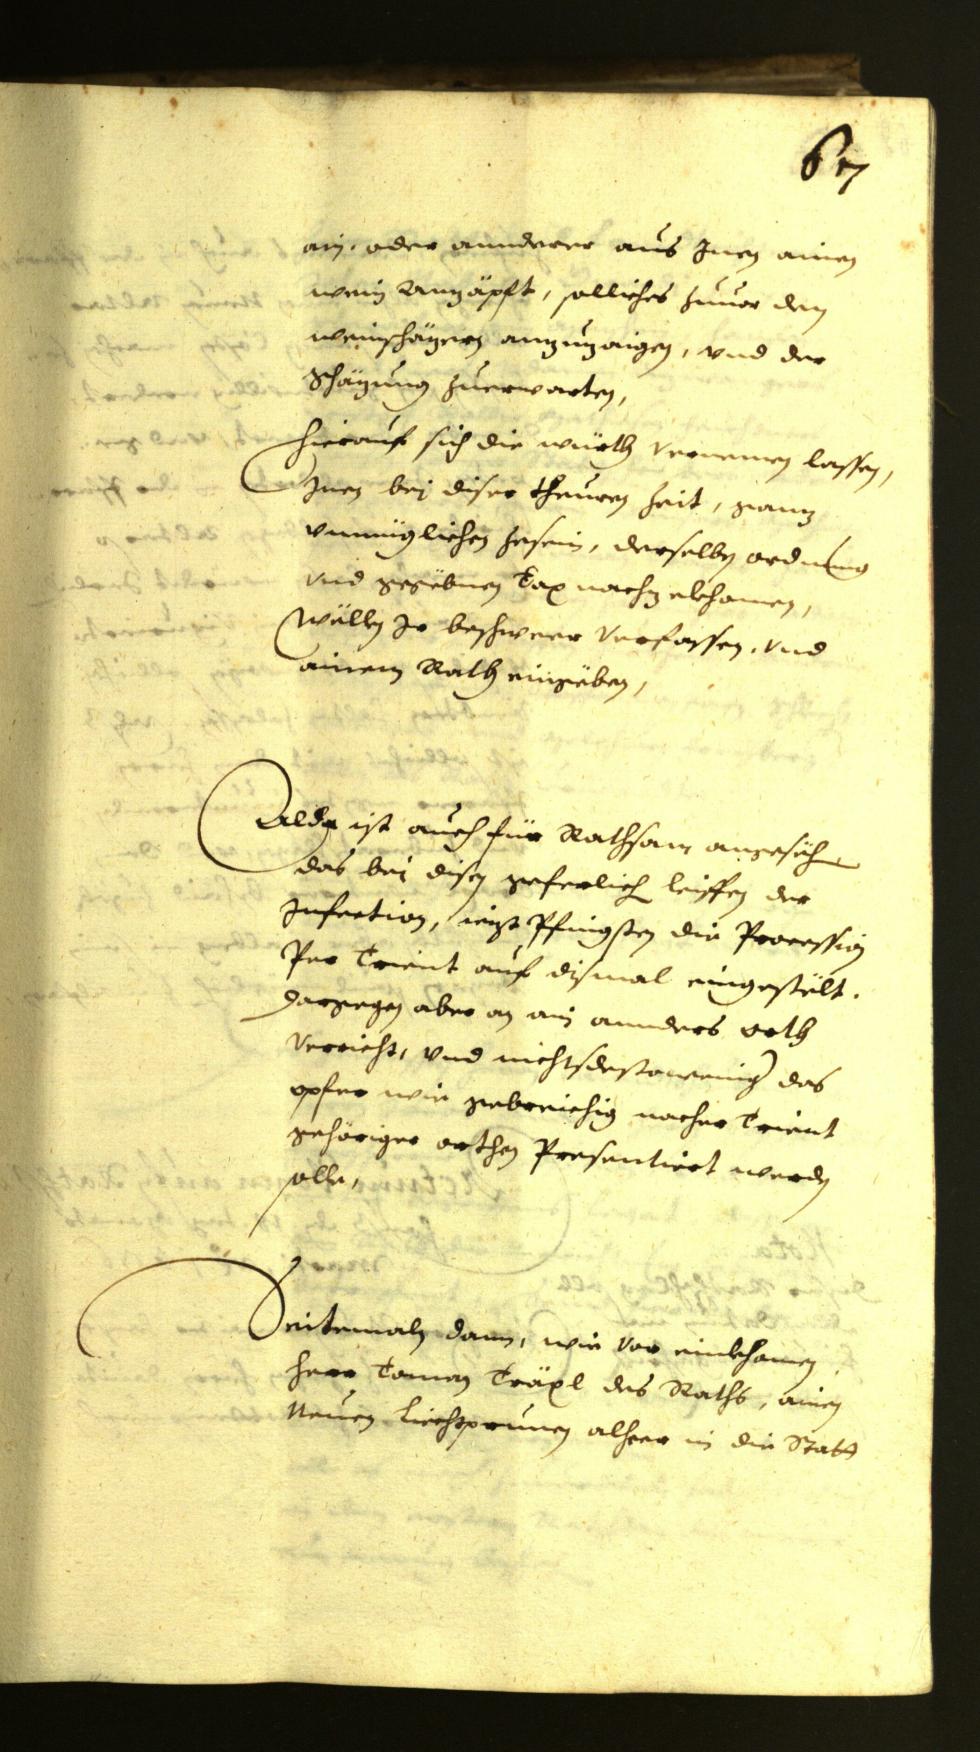 67
ain oder annderer aus Inen ainen
wein anzäpft, solliches zuuor den
weinschäzern anzuzaigen, vnd der
schäzung zuerwarten,
hierauf sich die würth vernemen lassen,
Inen bej diser theuren zeit, ganz
vnmüglichen zesein, derselben ordnung
vnd gegebnen Tax nachzekhomen,
Wellen Ir beschwer verfassen, vnd
ainem Rath eingeben,
Alda ist auch für Rathsam angesehen
das bej disen geferlich leiffen der
Infection, iezt Pfingsten die Procession
Per Trient auf dismal eingestelt.
dargegen aber an ain annders orth
verricht, vnd nichtsdestoweniger das
opfer wie gebreichig nacher Trient
gehöriger orthen Presentiert werden
solle,
Seitemaln dann, wie vor einkhomen
herr Toman Träxl des Raths, ainen
Neuen Ziechprunen alheer in die Statt